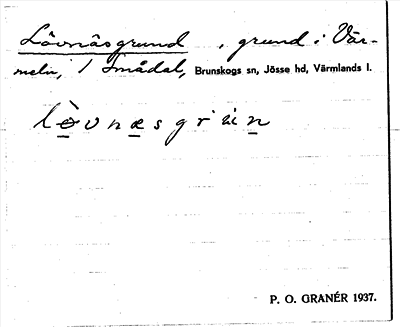 Lövnäsgrund, grund i Vär-
meln, 1 Smådal, Brunskogs sn, Jösse hd, Värmlands l.
P. O. GRANÉR 1937.